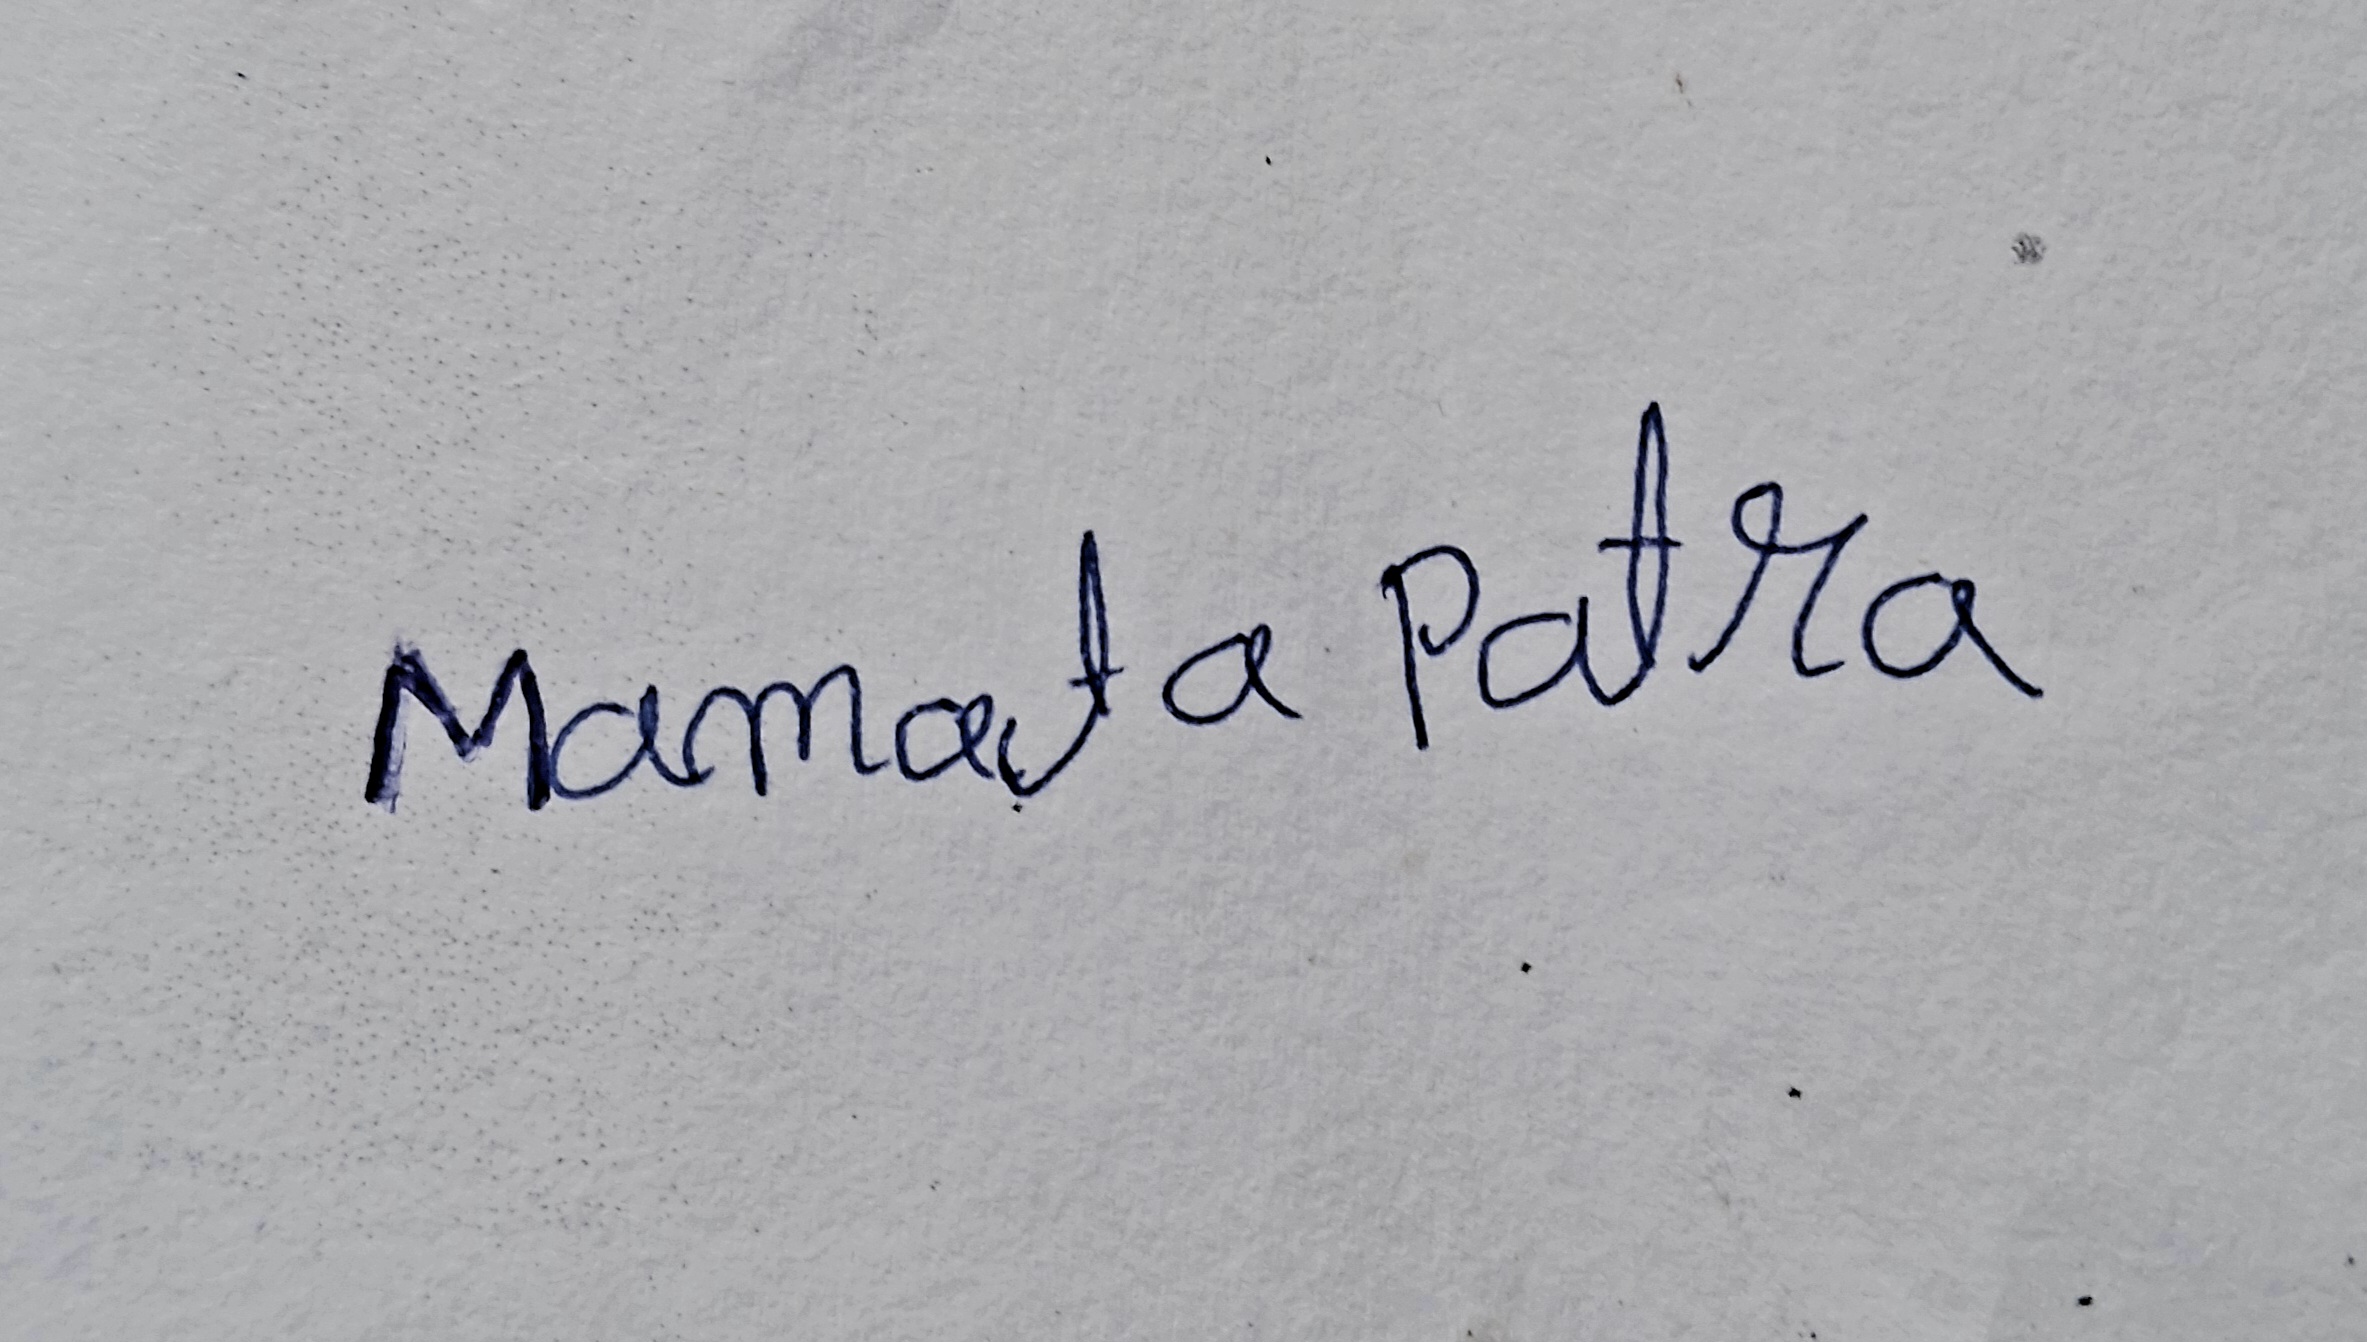 Mamata Patra